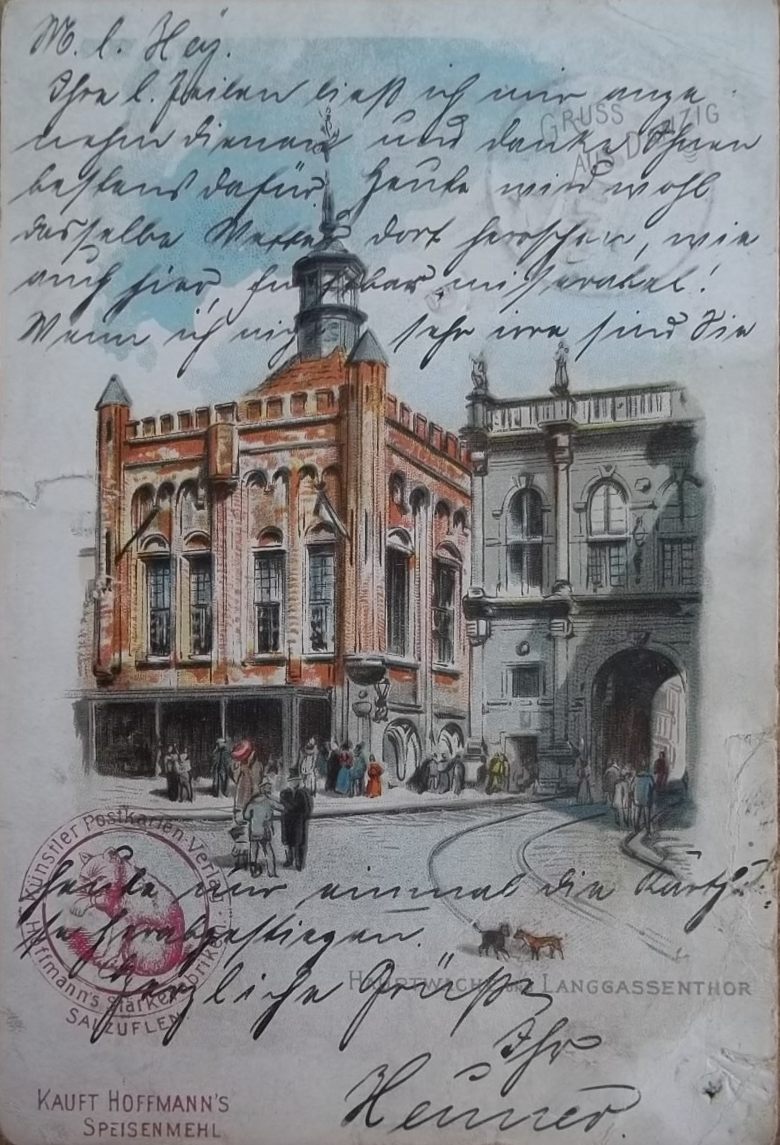 M. l. Hey.
Ihre l. Zeilen ließ ich mir ange-
nehm dienen und danke Ihnen
bestens dafür. Heute wird wohl
dasselbe Wetter dort herrschen, wie
auch hier, furchtbar miserabel!
Wenn ich nicht sehr irre sind Sie
GRUSS
AUS DANZIG
heute nur einmal die
herabgestiegen.
Herzliche Grüße
Ihr
HAUPTWACHE UND LANGGASSENTHOR
Künstler Postkarten-Verlag
Hoffmann's Stärkefabriken
SALZUFLEN
KAUFT HOFFMANN'S
SPEISENMEHL